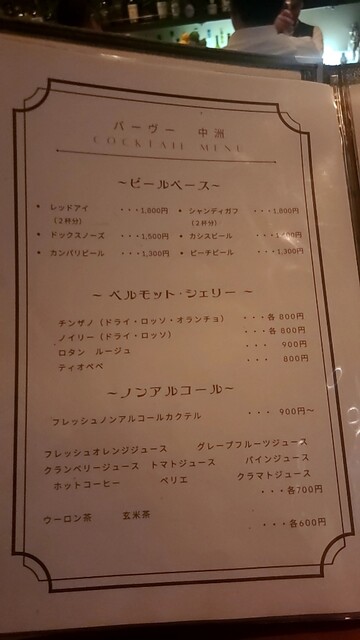 パーヴー 中洲
COCKTAIL MENU
～ビールベース～
• レッドアイ ・・・1,800円 • シャンディガフ ・・・1,800円
（2杯分） （2杯分）
• ドックスノーズ ・・・1,500円 • カシスビール
• カンパリビール ・・・1,300円 • ピーチビール ・・・1,300円
～ ベルモット・シェリー ～
チンザノ（ドライ・ロッソ・オランチョ） ・・・各 800円
ノイリー（ドライ・ロッソ） ・・・各 800円
ロタン ルージュ ・・・ 900円
ティオペペ ・・・ 800円
～ノンアルコール～
フレッシュノンアルコールカクテル ・・・ 900円～
フレッシュオレンジジュース グレープフルーツジュース
クランベリージュース トマトジュース パインジュース
ホットコーヒー ペリエ クラマトジュース
・・・各700円
ウーロン茶 玄米茶
・・・各600円